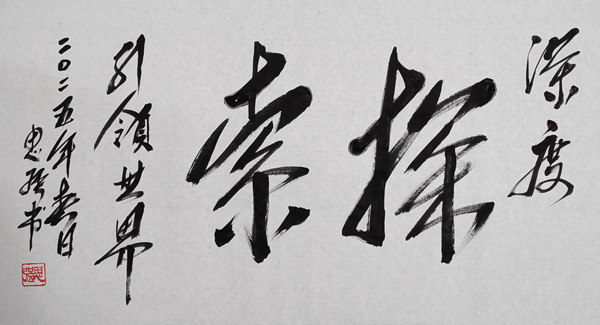 深度
探索
引领世界
二〇二五年春日
书